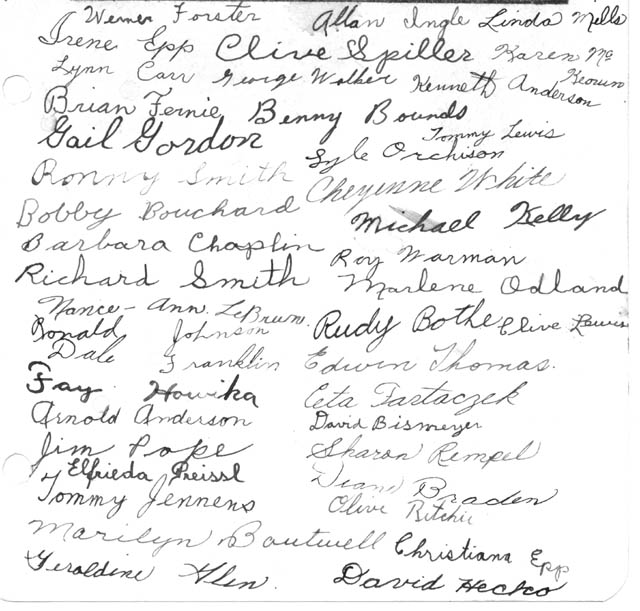 Werner Forster Allan Ingle Linda Mells
Irene Epp Clive Spiller Karen Mc Keown
Lynn Carr George Walker Kenneth Anderson
Brian Fernie Benny Bounds
Gail Gordon Tommy Lewis
Lyle Orchison
Ronny Smith Cheyenne White
Bobby Bouchard Michael Kelly
Barbara Chaplin Roy Warman
Richard Smith Marlene Odland
Nance-Ann. LeBrum
Ronald Johnson Rudy Bothe Clive Lewis
Dale Franklin Edwin Thomas.
Fay Howika Ceta Tartaczek
Arnold Anderson David Bismeyer
Jim Pope Sharon Rempel
Elfrieda Preissl Diane Braden
Tommy Jennens Olive Ritchie
Marilyn Boutwell Christiana Epp
Geraldine Glen. David Hecko